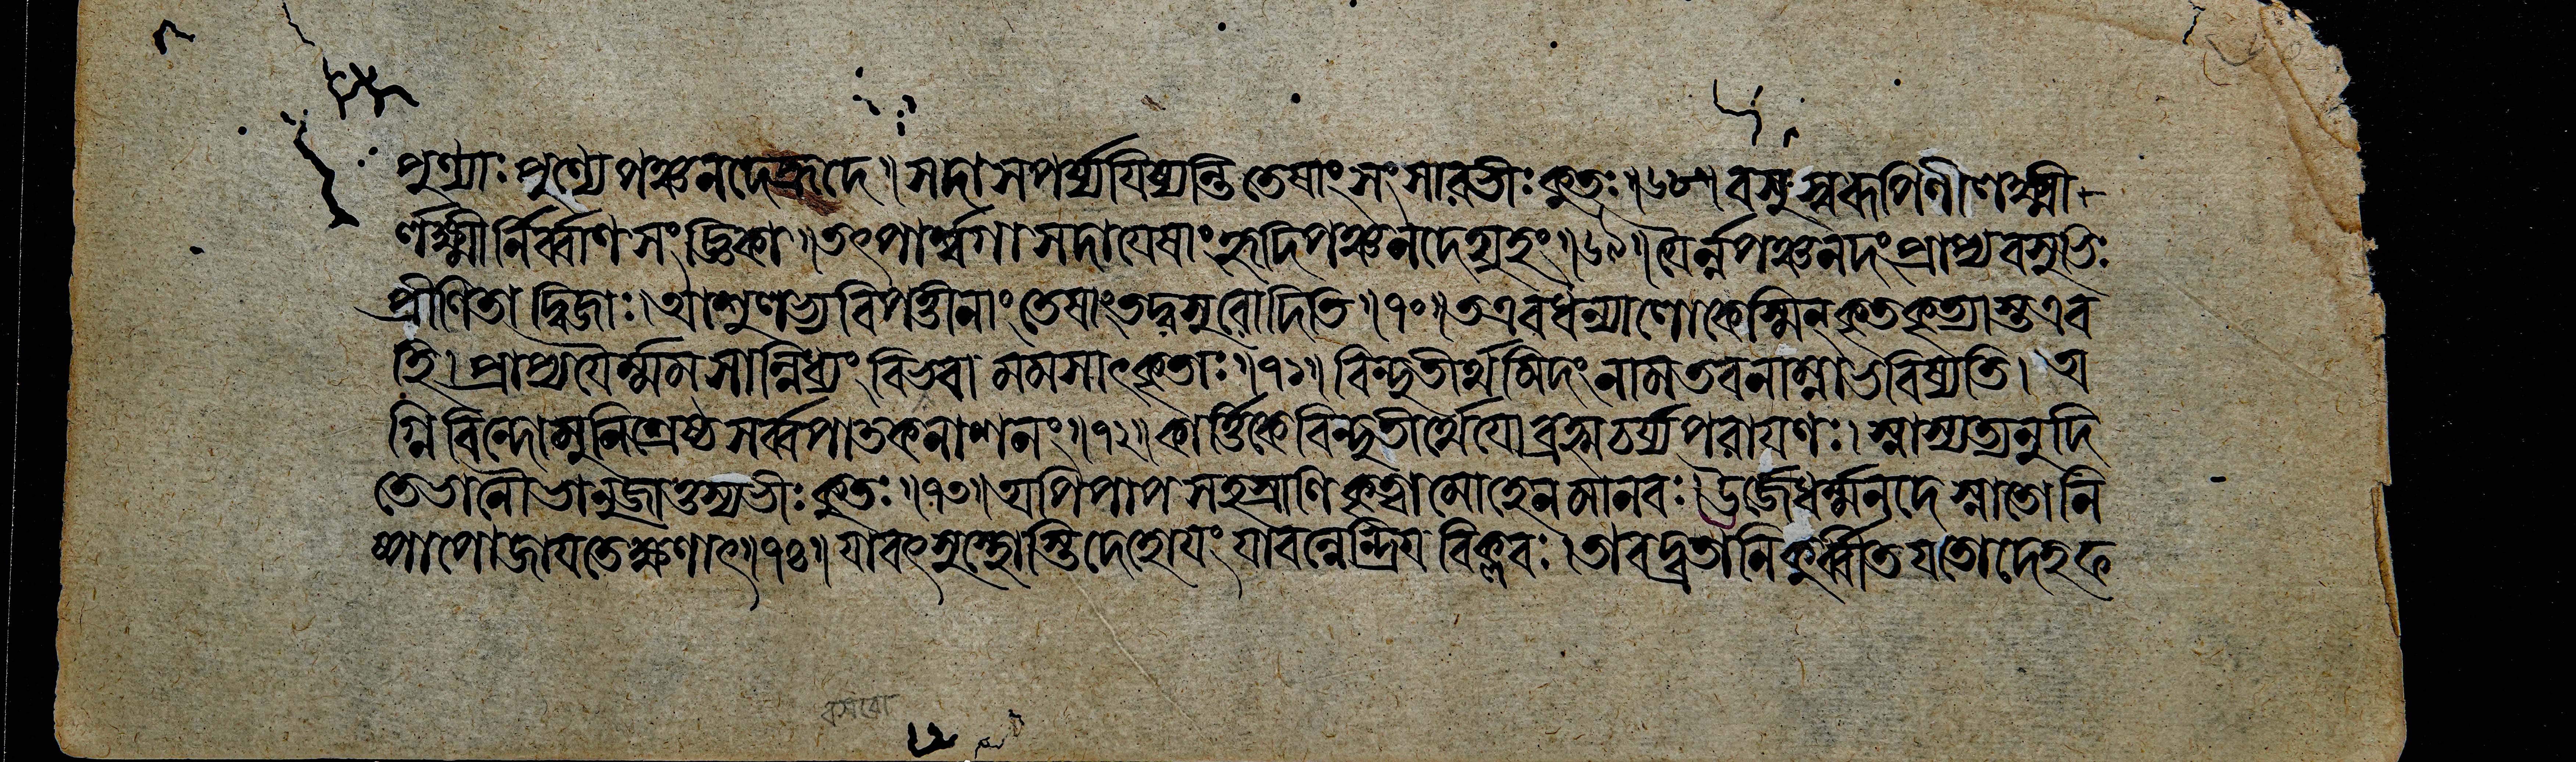 পুণ্যাঃ পুণ্যে পঞ্চনদেহ্রদে ॥ সদা সপর্য্যয়িষ্যন্তি তেষাং সংসারভীঃ কুতঃ ॥৬৮॥ বসুস্বরূপিণী লক্ষ্মী-
র্লক্ষ্মীর্নির্ব্বাণ সংজ্ঞিকা ॥ তৎপার্শ্বগা সদা যেষাং হৃদি পঞ্চনদে গৃহং ॥৬৯॥ যৈর্ন্ন পঞ্চনদং প্রাপ্য বসুভিঃ
প্রীণিতা দ্বিজাঃ। আশুলভ্য বিপত্তীনাং তেষাং তদ্বসু রোদিতি ॥৭০॥ ত এব ধন্যা লোকেস্মিন কৃতকৃত্যাস্ত এব
হি। প্রাপ্য যৈর্ম্মম সান্নিধ্যং বিভবা মমসাৎকৃতাঃ ॥৭১॥ বিন্দুতীর্থমিদং নাম তব নাম্না ভবিষ্যতি। অ
গ্নিবিন্দো মুনিশ্রেষ্ঠ সর্ব্বপাতকনাশনং ॥৭২॥ কার্ত্তিকে বিন্দুতীর্থে যো ব্রহ্মচর্য্যপরায়ণঃ। স্নাস্যত্যনুদি
তে ভানৌ ভানুজাত্তস্য ভীঃ কুতঃ ॥৭৩॥ অপি পাপ সহস্রাণি কৃত্বা মোহেন মানবঃ। ঊর্জে ধর্ম্মনদে স্নাতো নি
ষ্পাপো জায়তে ক্ষণাৎ ॥৭৪॥ যাবৎ সুস্থোস্তি দেহোয়ং যাবন্নেন্দ্রিয় বিক্লবঃ। তাবদ্ব্রতানি কুর্ব্বিত যতো দেহফ